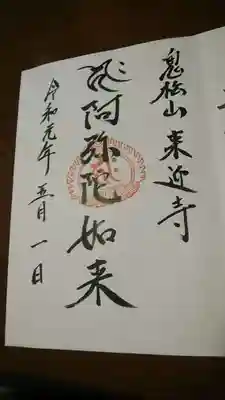 鬼松山来迎寺
阿弥陀如来
令和元年五月一日